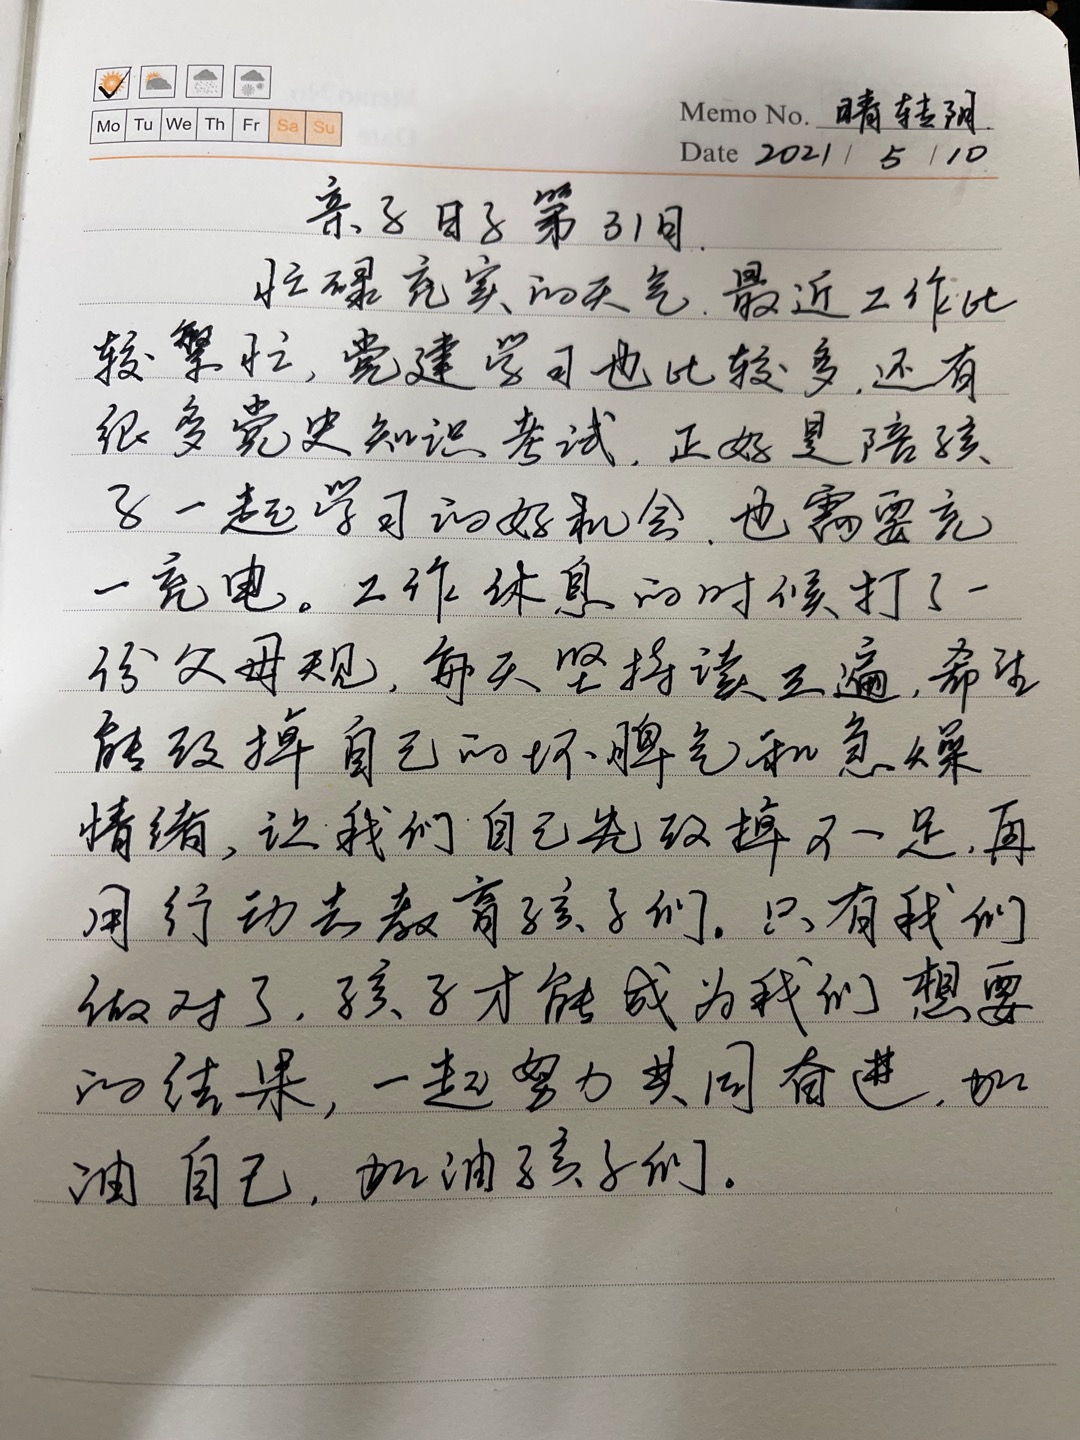 Mo Tu We Th Fr Sa Su
Memo No. 晴转阴
Date 2021 / 5 / 10
亲子日子第31日.
忙碌充实的天气.最近工作比
较繁忙,党建学习也比较多.还有
很多党史知识考试,正好是陪孩
子一起学习的好机会.也需要充
一充电。工作休息的时候打了一
份父母规,每天坚持读三遍,希望
能改掉自己的坏脾气和急燥
情绪,让我们自己先改掉不足,再
用行动去教育孩子们。只有我们
做对了,孩子才能成为我们想要
的结果,一起努力共同奋进.加
油自己,加油孩子们。